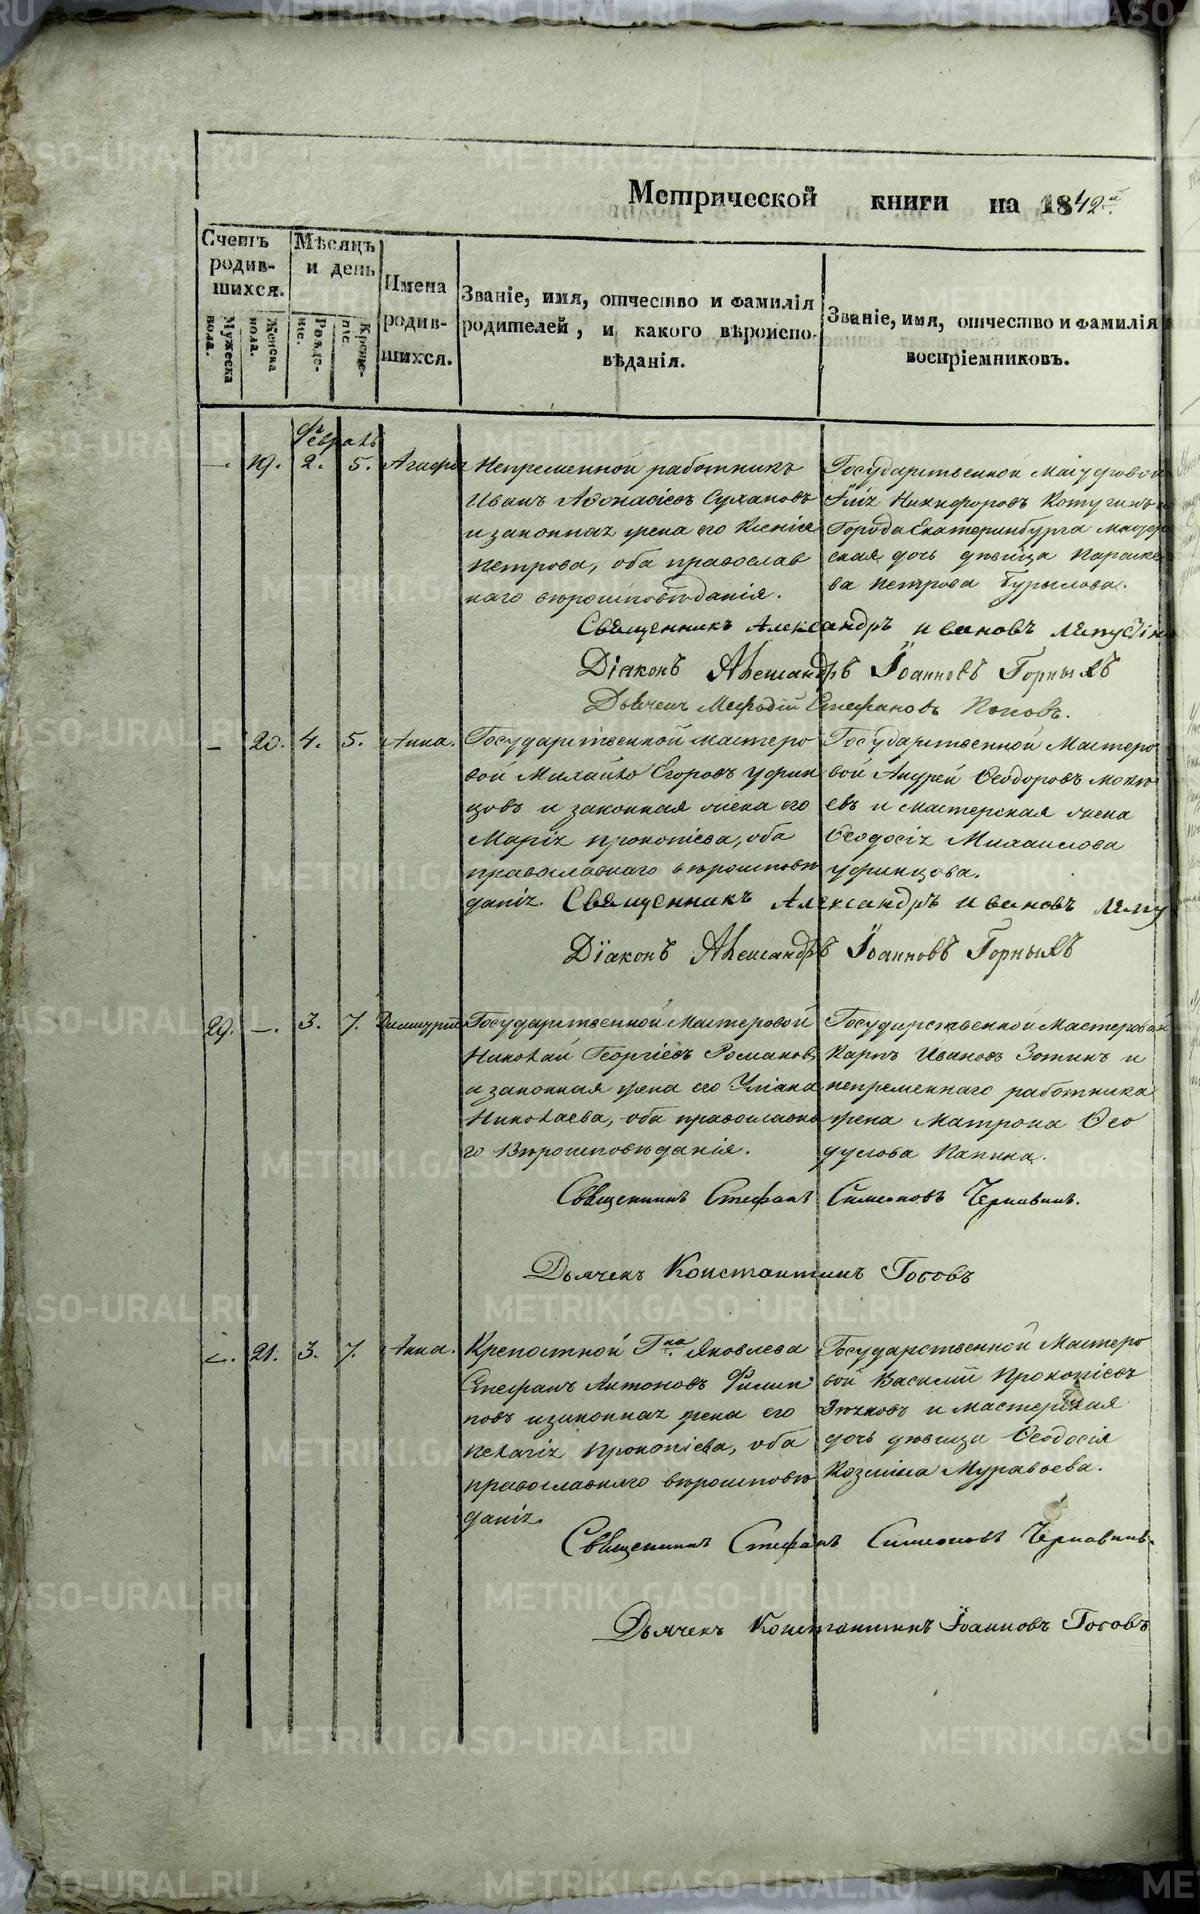 Метрической книги на 1842й.
Счетъ родившихся.
Мужеска пола.
Женска пола.
Мѣсяцъ и день
Рожденіе.
Крещеніе.
Имена родившихся.
Званіе, имя, отчество и фамилія родителей, и какого вѣроисповѣданія.
Званіе, имя, отчество и фамилія воспріемниковъ.
Февраль
—. 19. 2. 5.
Непременной работникъ
Иванъ Афонасіевъ Сухановъ
и законная жена его Ксенія
Петрова, оба православ
наго вѣроисповѣданія.
Государственной
Никифоровъ
Города Екатеринбурга
ская дочь дѣвица Параске
ва Петрова Бурылова.
Священникъ Александръ Ивановъ
Діаконъ Александръ Іоанновъ Горныхъ
Дьячекъ Мефодій Стефановъ Поповъ.
— 20. 4. 5. Анна.
Государственной мастеро
вой Михайло Егоровъ Уфин
цовъ и законная жена его
Марія Прокопіева, оба
православнаго вѣроисповѣ
данія.
Государственной Мастеро
вой Андрей Ѳеодоровъ
евъ и мастерская жена
Ѳеодосія Михаилова
Уфинцова.
Священникъ Александръ Ивановъ
Діаконъ Александръ Іоанновъ Горныхъ
29. —. 3. 7. Димитрій
Государственной Мастеровой
Николай Георгіевъ Романовъ
и законная жена его Уліана
Николаева, оба православна
го Вѣроисповѣданія.
Государственной Мастеровой
Карпъ Ивановъ Зотинъ и
непременнаго работника
жена Матрона Ѳео
дулова Папина.
Священникъ Стефанъ Симеоновъ Чернавинъ.
Дьячекъ Константинъ Госовъ
—. 21. 3. 7. Анна.
Крепостной Гна. Яковлева
Стефанъ Антоновъ Филип
повъ и законная жена его
Пелагія Прокопіева, оба
православнаго вѣроисповѣ
данія.
Государственной Мастеро
вой Василій Прокопіевъ
и мастерская
дочь дѣвица Ѳеодосія
Козмина Муравьева.
Священникъ Стефанъ Симеоновъ Чернавинъ.
Дьячекъ Константинъ Іоанновъ Госовъ
METRIKI.GASO-URAL.RU